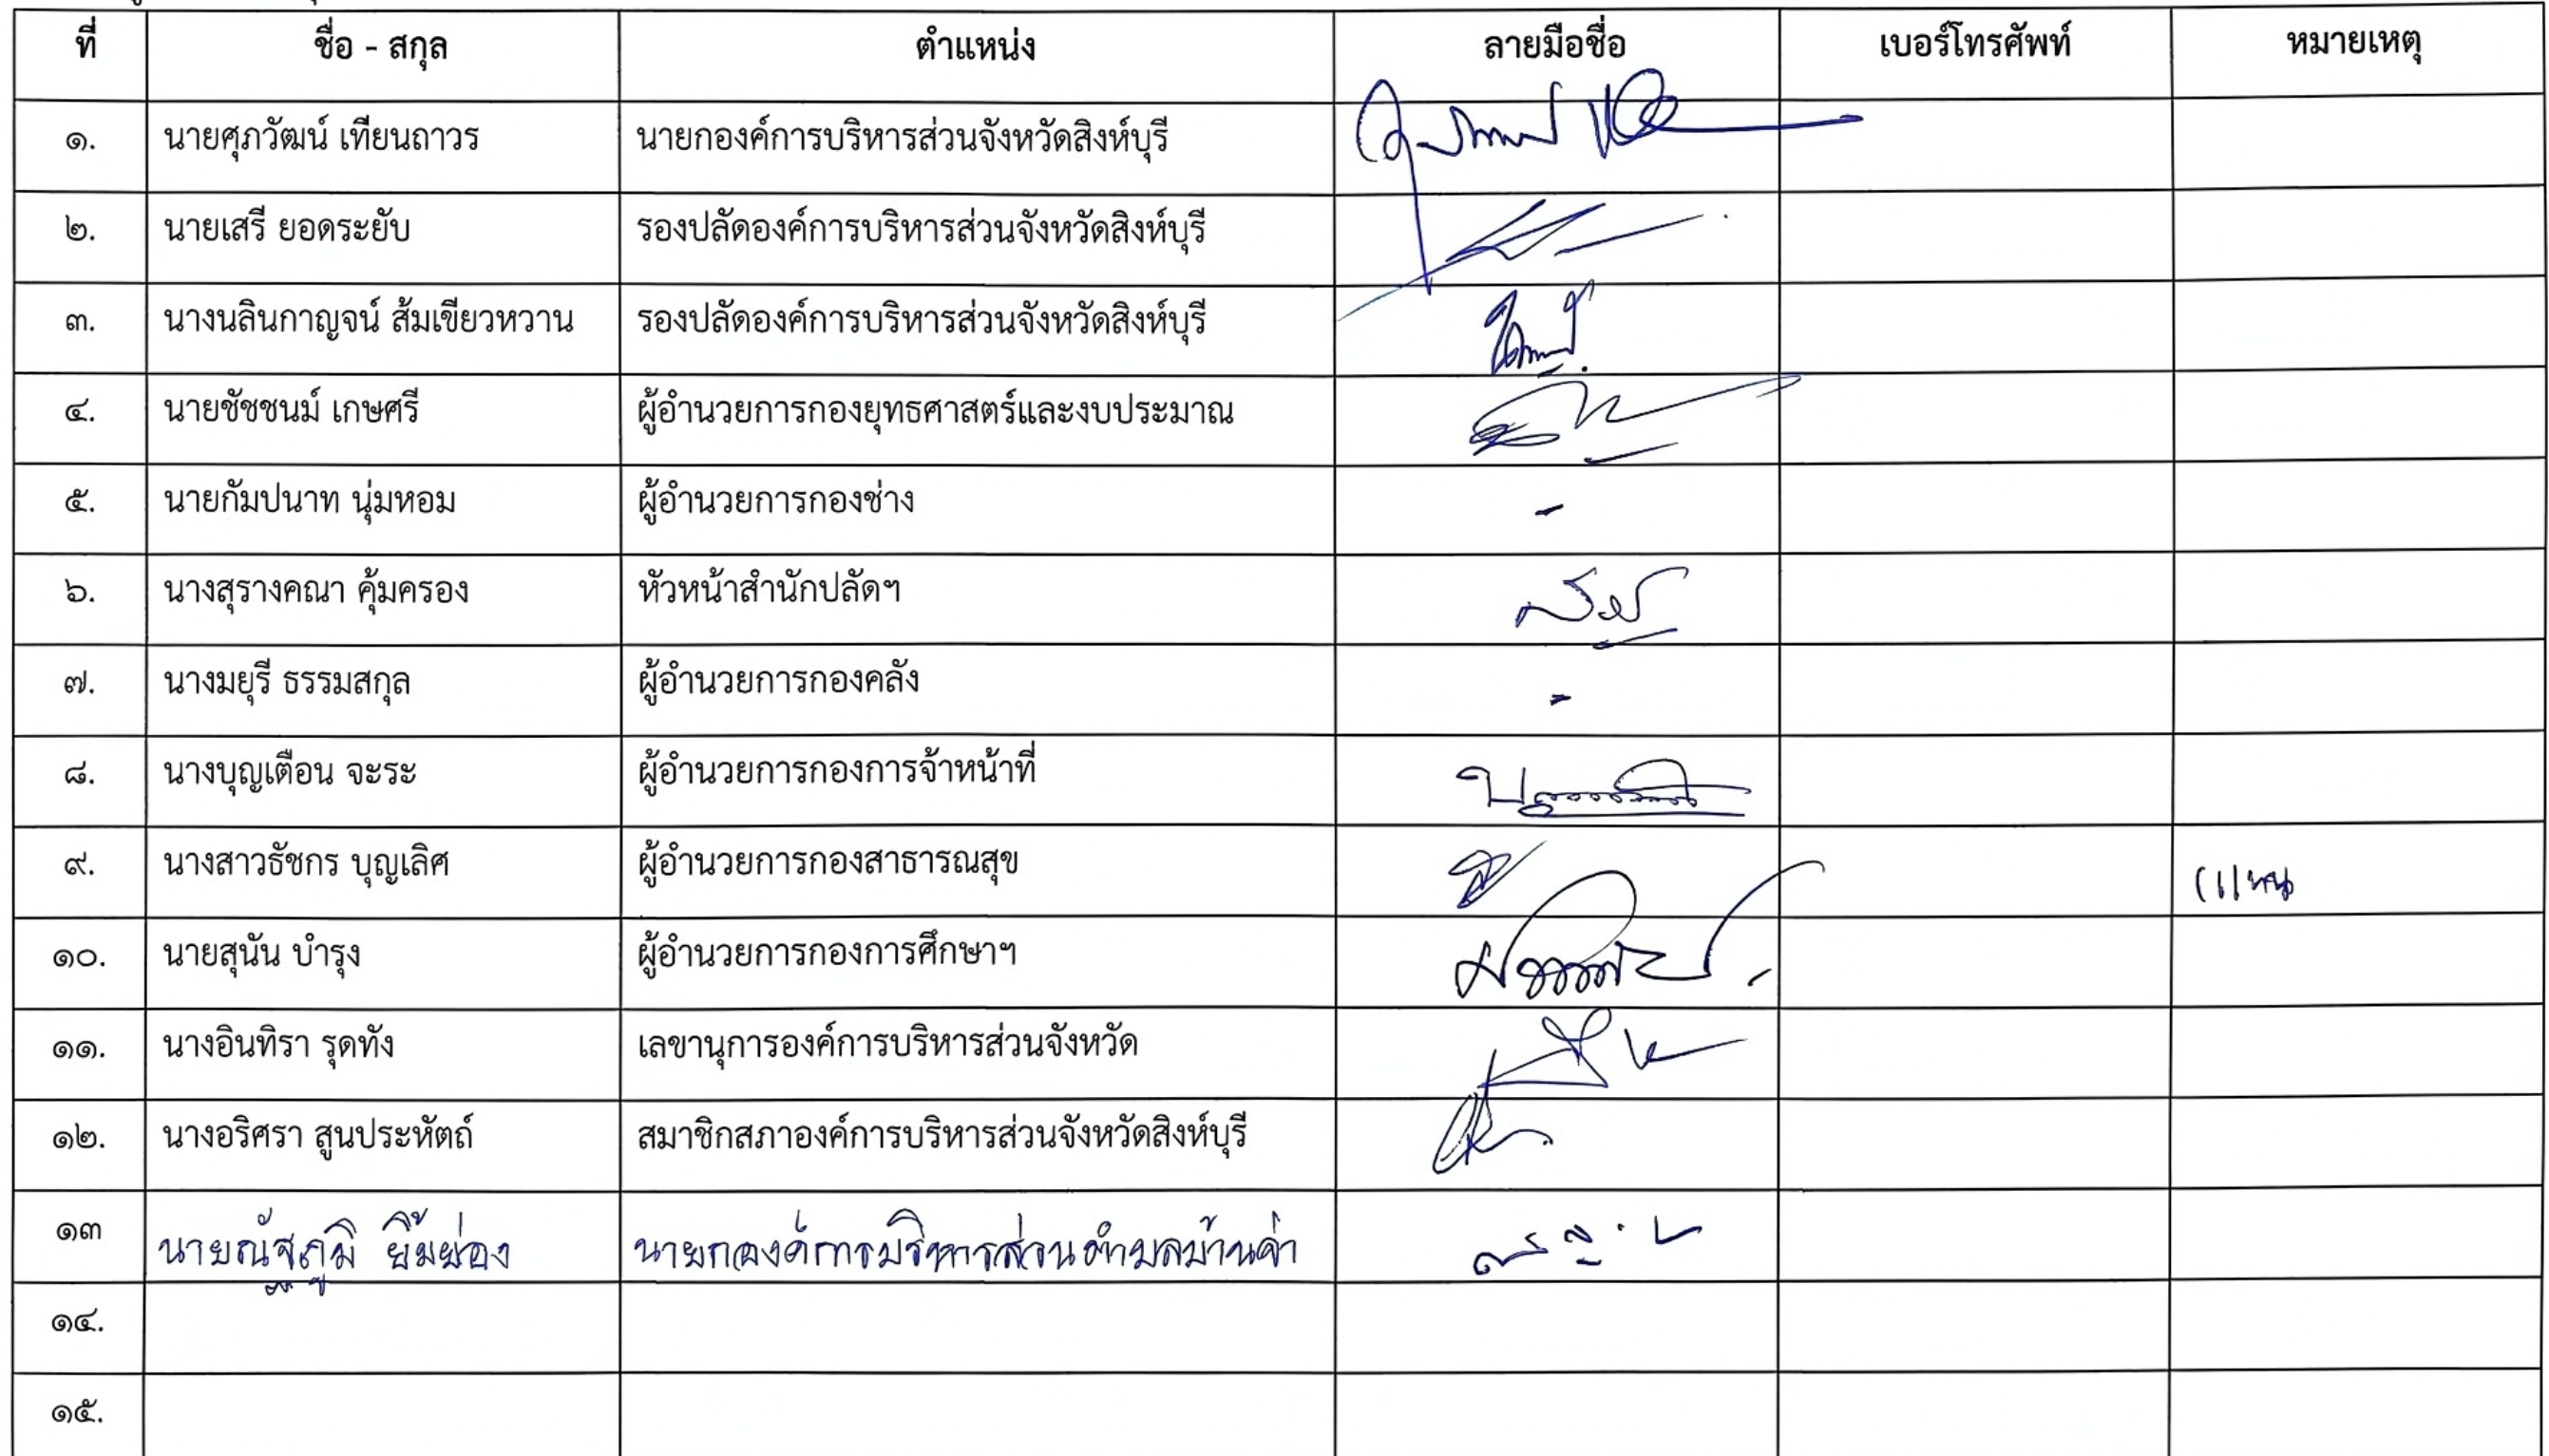 ที่ ชื่อ - สกุล ตำแหน่ง ลายมือชื่อ เบอร์โทรศัพท์ หมายเหตุ
๑. นายศุภวัฒน์ เทียนถาวร นายกองค์การบริหารส่วนจังหวัดสิงห์บุรี
๒. นายเสรี ยอดระยับ รองปลัดองค์การบริหารส่วนจังหวัดสิงห์บุรี
๓. นางนลินกาญจน์ ส้มเขียวหวาน รองปลัดองค์การบริหารส่วนจังหวัดสิงห์บุรี
๔. นายชัชชนม์ เกษศรี ผู้อำนวยการกองยุทธศาสตร์และงบประมาณ
๕. นายกัมปนาท นุ่มหอม ผู้อำนวยการกองช่าง -
๖. นางสุรางคณา คุ้มครอง หัวหน้าสำนักปลัดฯ
๗. นางมยุรี ธรรมสกุล ผู้อำนวยการกองคลัง -
๘. นางบุญเตือน จะระ ผู้อำนวยการกองการจ้าหน้าที่
๙. นางสาวธัชกร บุญเลิศ ผู้อำนวยการกองสาธารณสุข แทน
๑๐. นายสุนัน บำรุง ผู้อำนวยการกองการศึกษาฯ
๑๑. นางอินทิรา รุดทัง เลขานุการองค์การบริหารส่วนจังหวัด
๑๒. นางอริศรา สูนประหัตถ์ สมาชิกสภาองค์การบริหารส่วนจังหวัดสิงห์บุรี
๑๓ นายณัฐภูมิ ยิ้มย่อง นายกองค์การบริหารส่วนตำบลบ้านจ่า
๑๔.
๑๕.